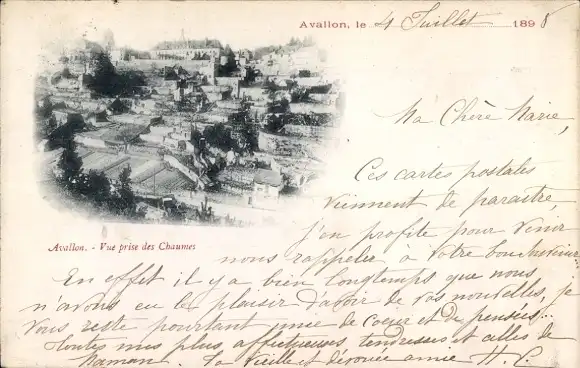 Avallon, le 4 Juillet 1898
Ma Chère Marie,
Ces cartes postales
viennent de paraître,
j'en profite pour venir
nous rappeler à votre bon
Avallon. - Vue prise des Chaumes
En effet il y a bien longtemps que nous
n'avons eu le plaisir d'avoir de vos nouvelles, je
vous reste pourtant unie de coeur et de pensées...
Toutes mes plus affectueuses tendresses et celles de
Maman. Ta vieille et dévouée amie H. C.